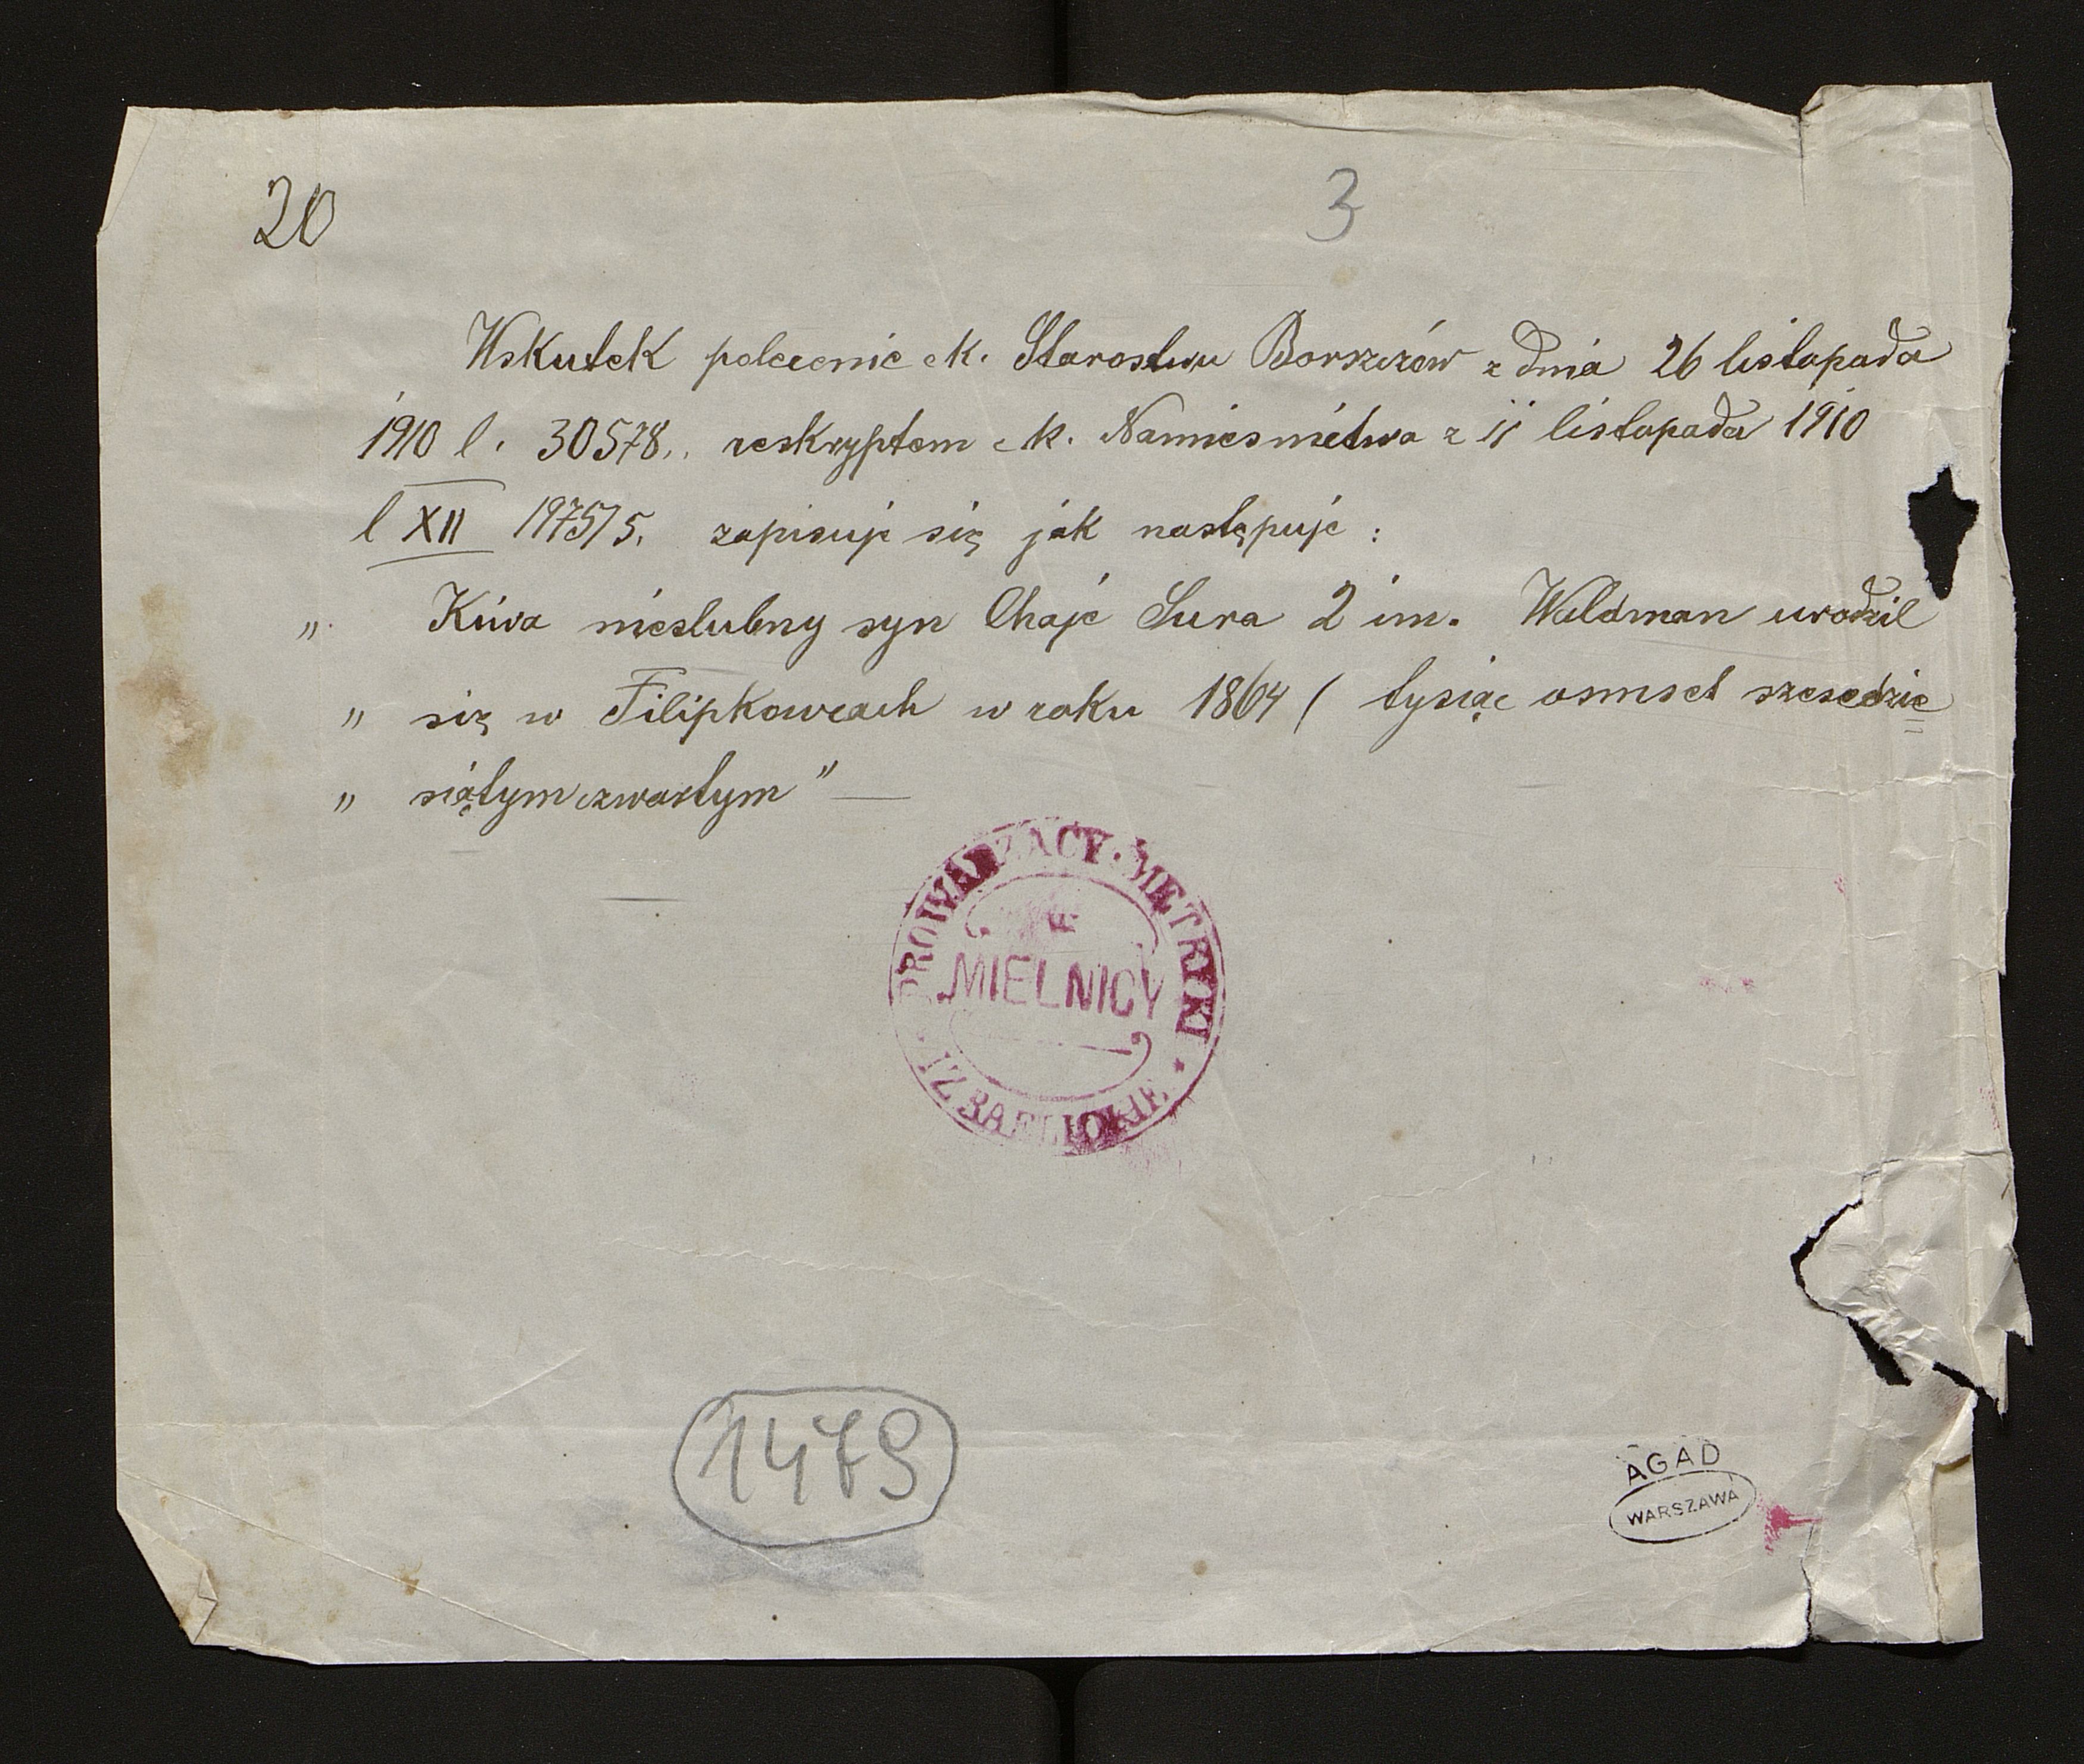 20
3
Wskutek polecenie ck. Starostwu Borszczów z dnia 26 listopada
1910 l. 30578., reskryptem ck. Namiesnictwa z 11 listopada 1910
l XII 1975/5. zapisuje się jak następuje :
„ Kiwa nieslubny syn Chaje Sura 2 im. Waldman urodzil
„ się w Filipkowcach w roku 1864 ( tysiąc osmset szescdzie
„ siątym czwartym" —
PROWADZĄCY · METRYKI
W
MIELNICY
IZRAELICKIE
1479
AGAD
WARSZAWA